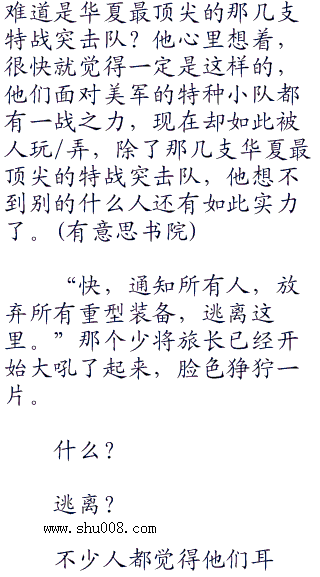 难道是华夏最顶尖的那几支
特战突击队？他心里想着，
很快就觉得一定是这样的，
他们面对美军的特种小队都
有一战之力，现在却如此被
人玩/弄，除了那几支华夏最
顶尖的特战突击队，他想不
到别的什么人还有如此实力
了。(有意思书院)
“快，通知所有人，放
弃所有重型装备，逃离这
里。”那个少将旅长已经开
始大吼了起来，脸色狰狞一
片。
什么？
逃离？
www.shu008.com
不少人都觉得他们耳